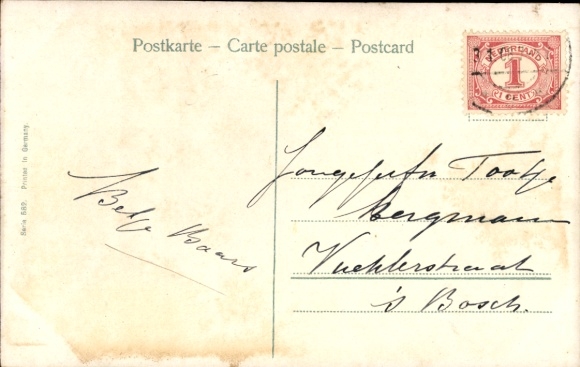 Postkarte – Carte postale – Postcard
NEDERLAND
1
CENT
Serie 582. Printed in Germany.
Betje Baars
Jongejufr Tootje
Bergmann
Vuchterstraat
's Bosch.